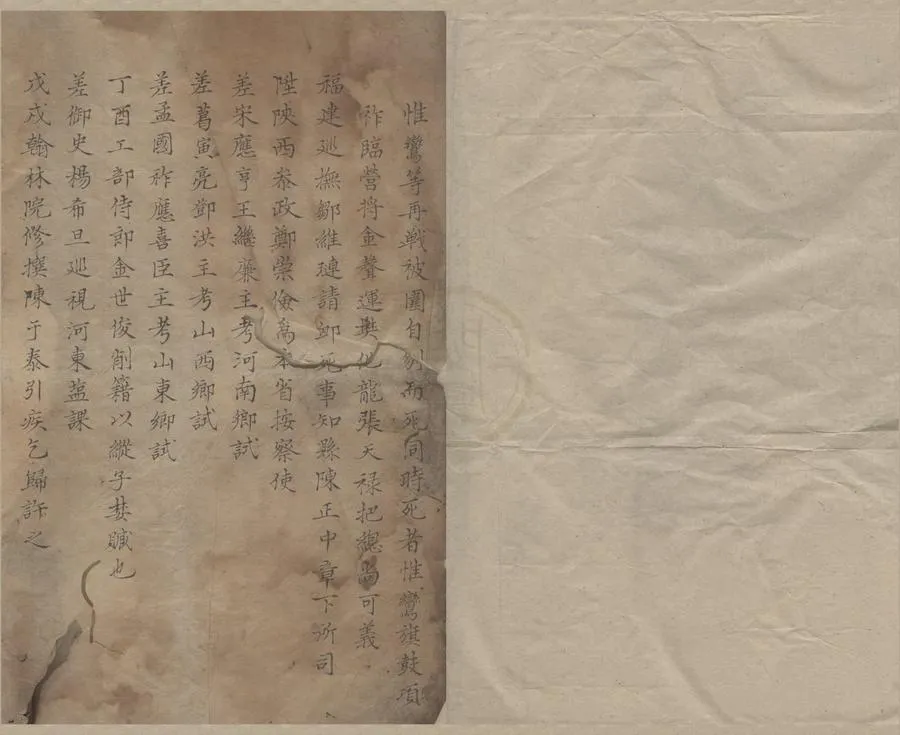 惟鸞等再戰被圍自刎而死同時死者惟鸞旗鼓項
祚臨營將金聲運樊化龍張天祿把總尚可義
福建巡撫鄒維璉請卹死事知縣陳正中章下所司
陞陝西叅政鄭崇儉為本省按察使
差宋應亨王繼廉主考河南鄉試
差葛寅亮鄧洪主考山西鄉試
差孟國祚應喜臣主考山東鄉試
丁酉工部侍郎金世俊削籍以縱子婪贓也
差御史楊希旦巡視河東盐課
戊戌翰林院修撰陳于泰引疾乞歸許之